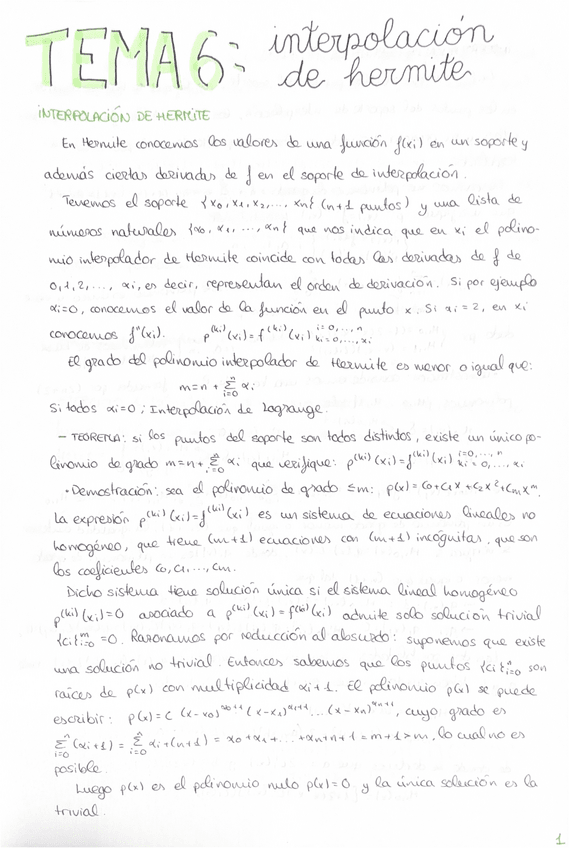 TEMA 6: interpolación
de hermite
INTERPOLACIÓN DE HERMITE
En Hermite conocemos los valores de una función f(xi) en un soporte y
además ciertas derivadas de f en el soporte de interpolación.
Tenemos el soporte {x0, x1, x2, ..., xn} (n+1 puntos) y una lista de
números naturales {α0, α1, ..., αn} que nos indica que en xi el polino-
mio interpolador de Hermite coincide con todas las derivadas de f de
0,1,2,..., αi, es decir, representan el orden de derivación. Si por ejemplo
αi=0, conocemos el valor de la función en el punto x. Si αi=2, en xi
conocemos f''(xi). p^(ki)(xi)=f^(ki)(xi) i=0,...,n ki=0,...,αi
El grado del polinomio interpolador de Hermite es menor o igual que:
m=n+∑_{i=0}^{n} αi
Si todos αi=0; Interpolación de Lagrange.
– TEOREMA: si los puntos del soporte son todos distintos, existe un único po-
linomio de grado m=n+∑_{i=0}^{n} αi que verifique: p^(ki)(xi)=f^(ki)(xi) i=0,...,n ki=0,...,αi
• Demostración: sea el polinomio de grado ≤m: p(x)=c0+c1x+c2x²+cmx^m.
La expresión p^(ki)(xi)=f^(ki)(xi) es un sistema de ecuaciones lineales no
homogéneo, que tiene (m+1) ecuaciones con (m+1) incógnitas, que son
los coeficientes c0, c1, ..., cm.
Dicho sistema tiene solución única si el sistema lineal homogéneo
p^(ki)(xi)=0 asociado a p^(ki)(xi)=f^(ki)(xi) admite solo solución trivial
{ci}_{i=0}^{m}=0. Razonamos por reducción al absurdo: suponemos que existe
una solución no trivial. Entonces sabemos que los puntos {ci}_{i=0}^{n} son
raíces de p(x) con multiplicidad αi+1. El polinomio p(x) se puede
escribir: p(x)=C (x-x0)^{α0+1} (x-x1)^{α1+1} ... (x-xn)^{αn+1}, cuyo grado es
∑_{i=0}^{n} (αi+1) = ∑_{i=0}^{n} αi+(n+1) = α0+α1+...+αn+n+1 = m+1>m, lo cual no es
posible.
Luego p(x) es el polinomio nulo p(x)=0 y la única solución es la
trivial.
1